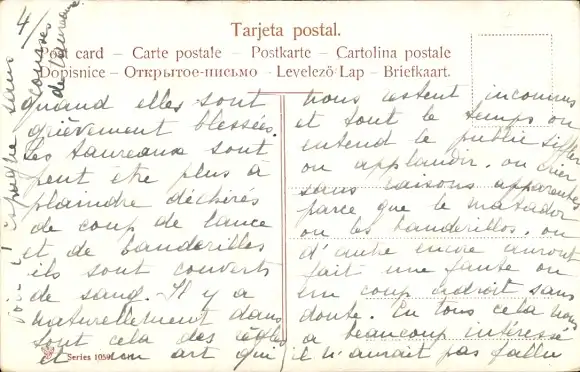 4/
courses
de taureaux
Tarjeta postal.
Post card – Carte postale – Postkarte – Cartolina postale
Dopisnice – Открытое-письмо – Levelező Lap – Briefkaart.
quand elles sont
grièvement blessées.
Les taureaux sont
peut etre plus à
plaindre déchirés
de coup de lance
et de banderilles
ils sont couverts
de sang. Il y a
naturellement dans
tout cela des règles
et un art qui
nous restent inconnus
et tout le temps on
entend le public siffler
ou applaudir, ou crier
sans raisons apparentes
parce que le matador
ou les banderillos, ou
d'autre encore auront
fait une faute ou
un coup adroit sans
doute. En tous cela nous
a beaucoup intéressé
il n'aurait pas fallu
Espagne sans
Series 105